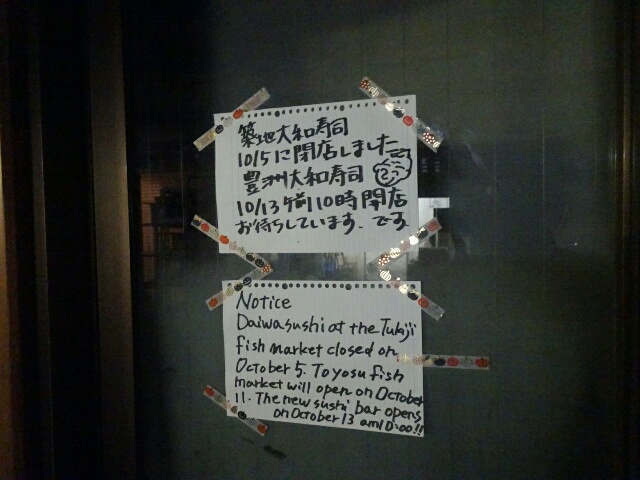 築地大和寿司
10/5に閉店しました
豊洲大和寿司
10/13 午前10時開店
お待ちしています。です
Notice
Daiwasushi at the Tukiji
fish market closed on
October 5. Toyosu fish
market will open on October
11. The new sushi bar opens
on October 13 am10:00!!